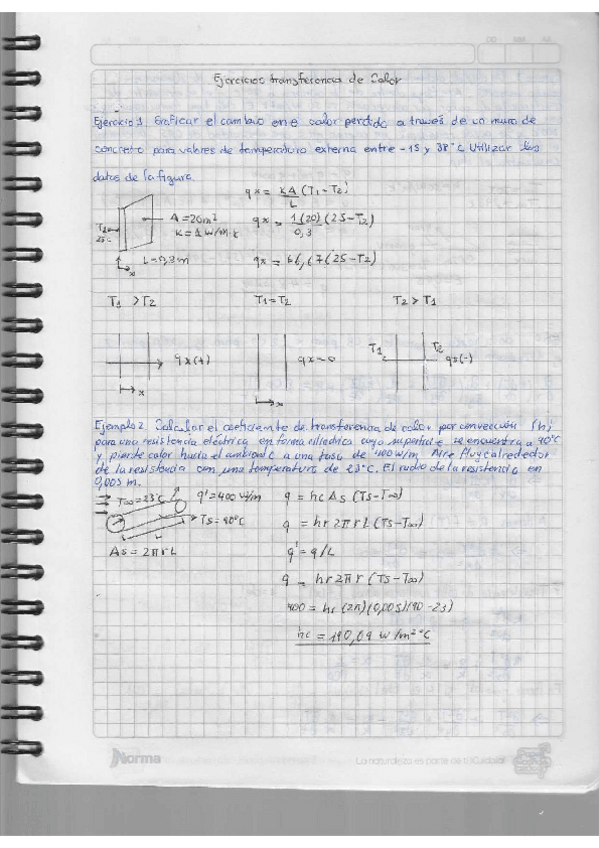 Ejercicios transferencia de Calor
Ejercicio 1 Graficar el cambio en e calor perdido a través de un muro de
concreto para valores de temperatura externa entre -15 y 38°C Utilizar los
datos de la figura.
qx = KA/L (T1-T2)
A = 20m²
K = 1 W/m.k
qx = 1(20)/0,3 (25-T2)
T1
25
L=0,3m
x
qx = 66,67(25-T2)
T1 > T2
T1 = T2
T2 > T1
qx(+)
qx=0
T1
T2
qx(-)
x
x
Ejemplo 2 Calcular el coeficiente de transferencia de calor por convección (h)
para una resistencia eléctrica en forma cilíndrica cuya superficie se encuentra a 90°C
y pierde calor hacia el ambiente a una tasa de 400 W/m Aire fluye alrededor
de la resistencia con una temperatura de 23°C. El radio de la resistencia en
0,005 m.
T∞=23°C
q'=400 W/m
q = hc As (Ts-T∞)
Ts=90°C
q = hr2πrL(Ts-T∞)
L
As = 2πrL
q' = q/L
q = hr2πr(Ts-T∞)
400 = hc(2π)(0,005)(90-23)
hc = 190,04 W/m²°C
Norma
La naturaleza es parte de ti ¡Cuídala!